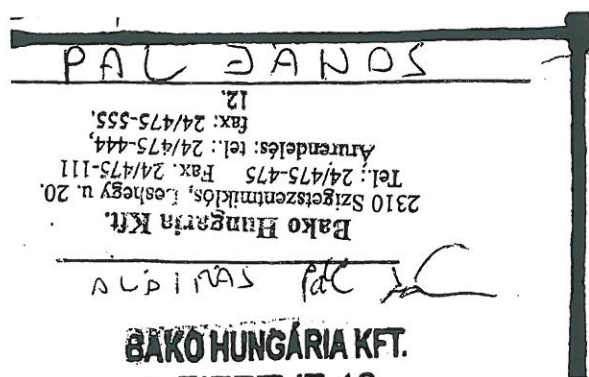 PAL JÁNOS
Bako Hungaria Kft.
2310 Szigetszentmiklós, Leshegy u. 20.
Tel.: 24/475-475 Fax. 24/475-111
Árurendelés: tel.: 24/475-444,
fax: 24/475-555.
12.
ALÁIRÁS Pál
BAKO HUNGÁRIA KFT.